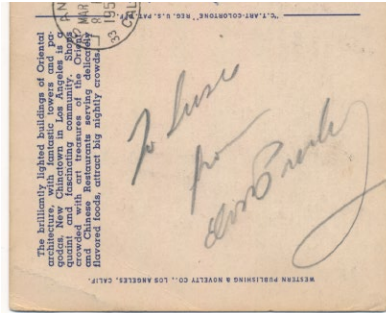 "C.T. ART-COLORTONE" REG. U.S. PAT.
MAR
8
195
33
The brilliantly lighted buildings of Oriental
architecture, with fantastic towers and pa-
godas, New Chinatown in Los Angeles is a
quaint and fascinating community. Shops
crowded with art treasures of the Orient
and Chinese Restaurants serving delicately
flavored foods, attract big nightly crowds.
To Susie
from
Elvis Presley
WESTERN PUBLISHING & NOVELTY CO., LOS ANGELES, CALIF.